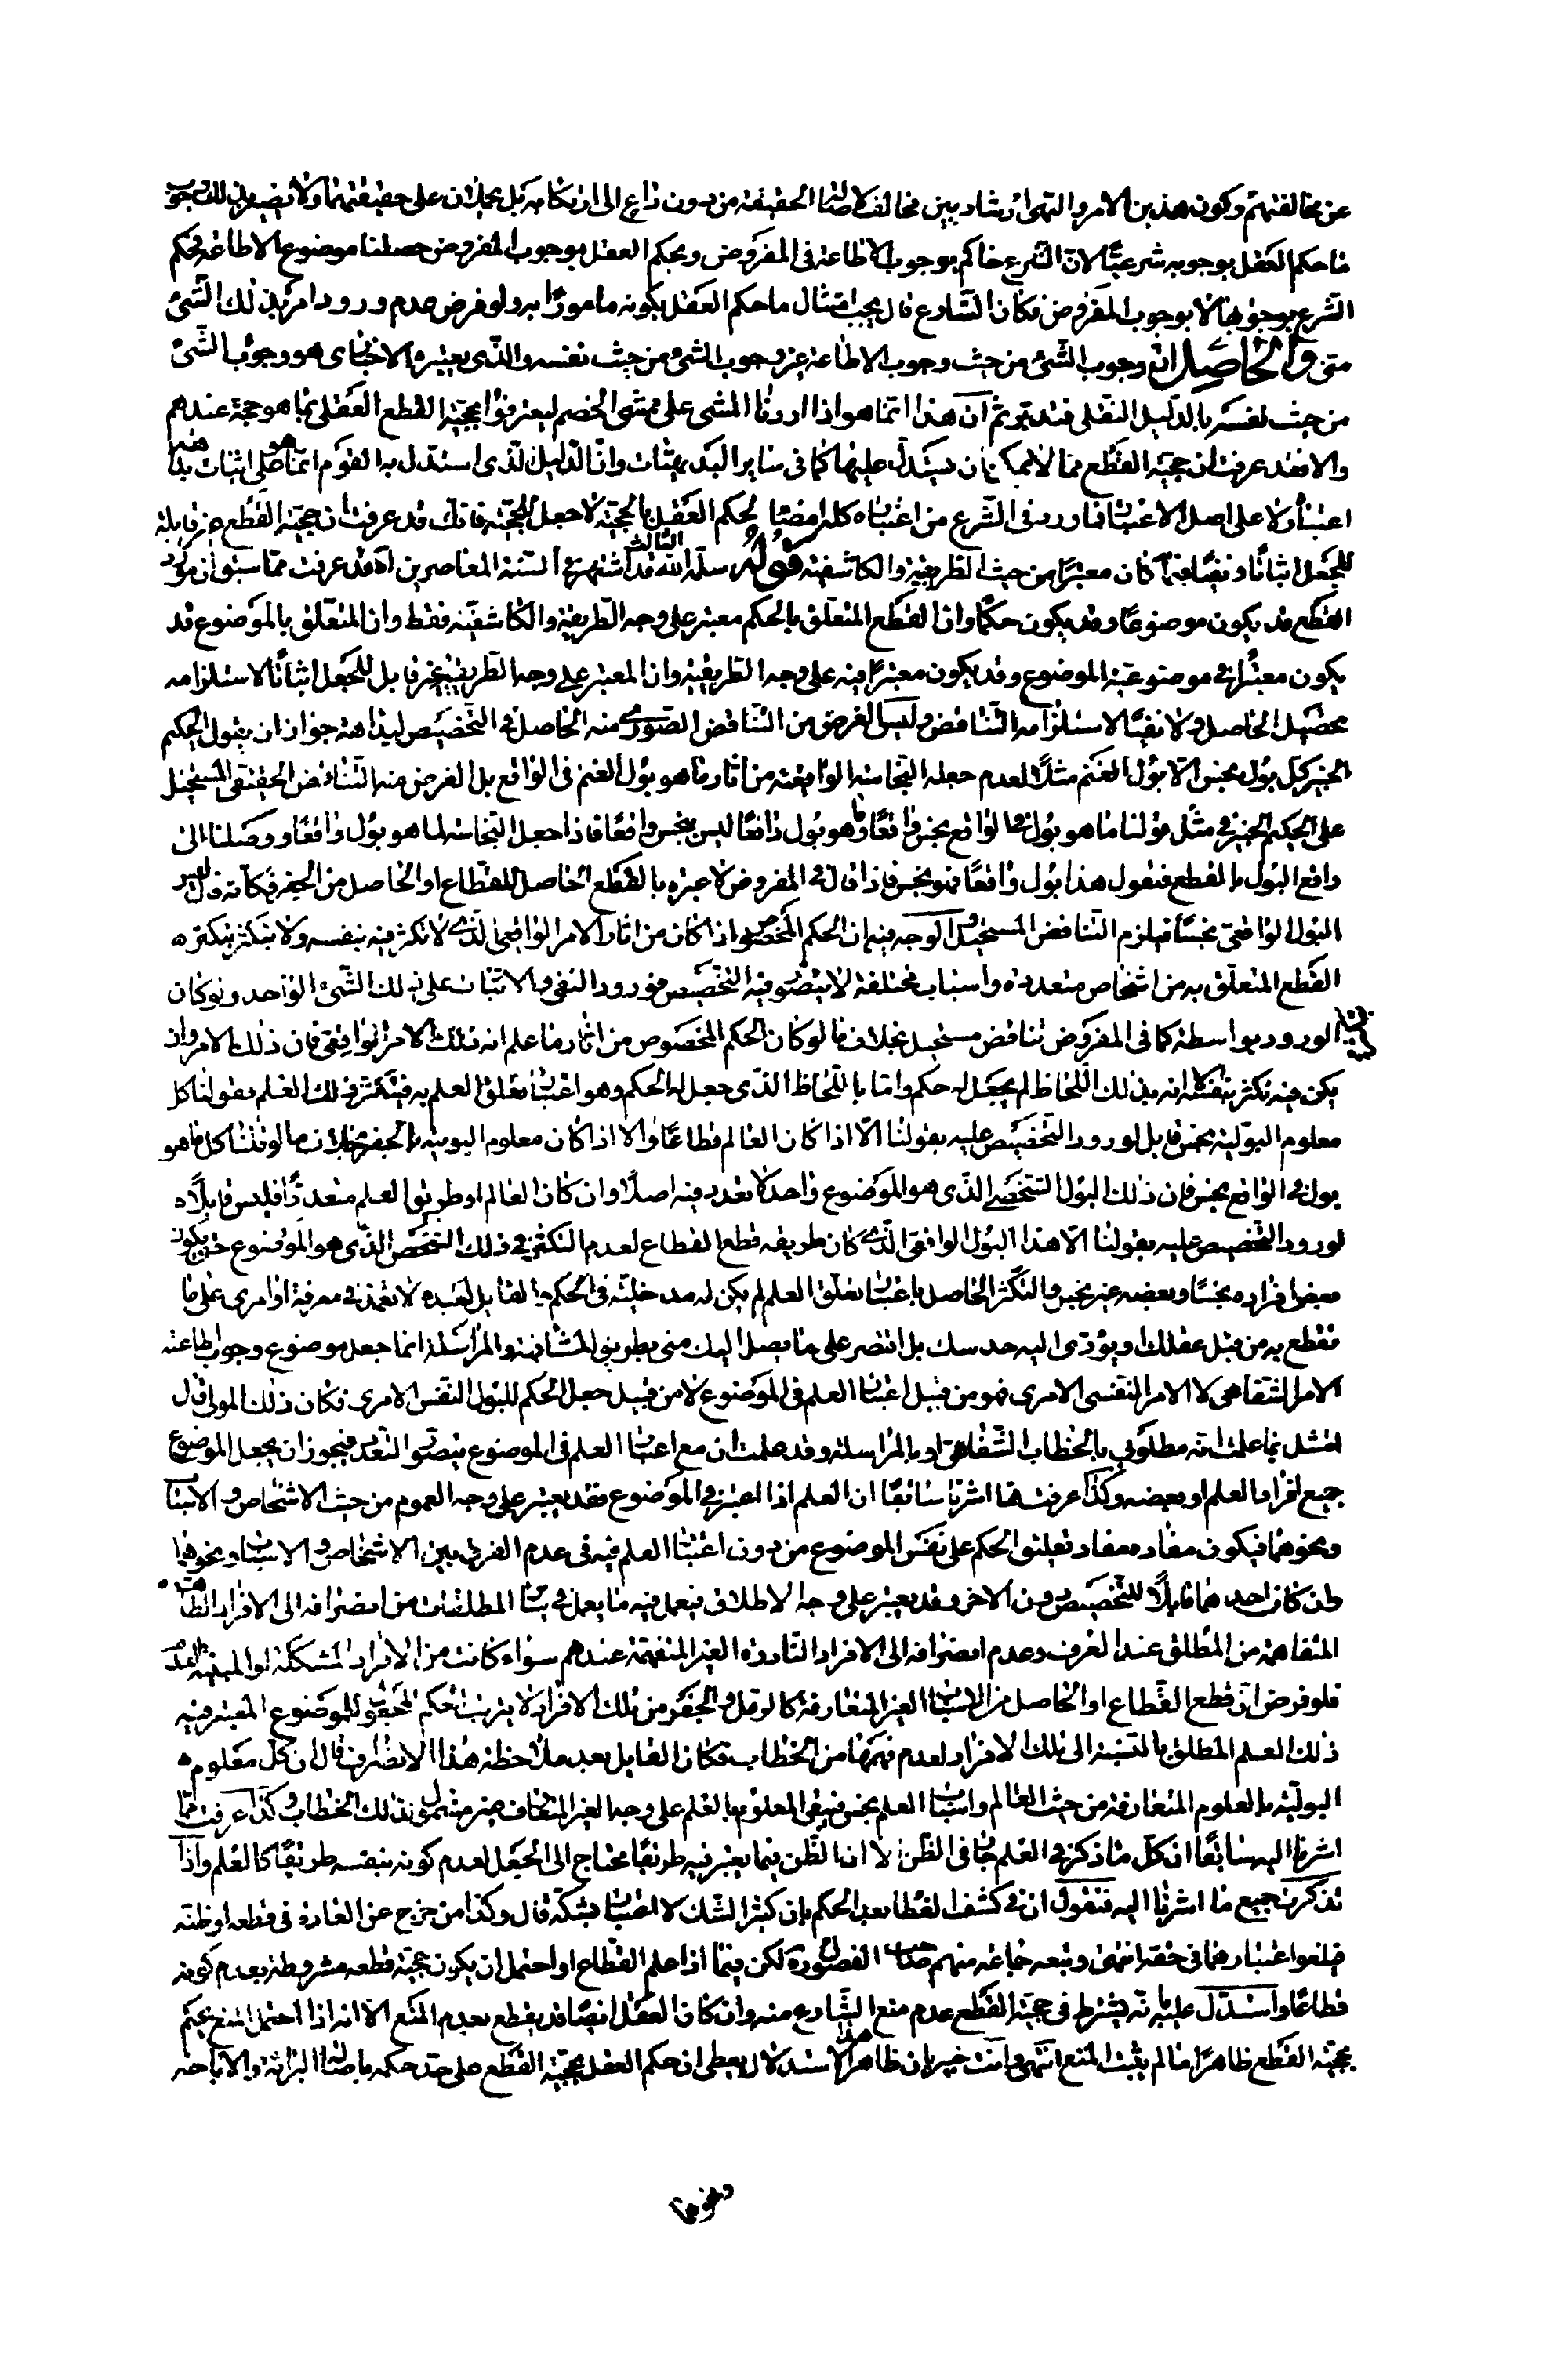 عن مخالفتهم وكون هذين الامر والنهى ارشاديين مخالف لاصالة الحقيقة من دون داع الى ارتكابه بل يحملان على حقيقتهما ولا يصير بذلك وجوب
ما حكم العقل بوجوبه شرعيًّا لان الشرع حاكم بوجوب الاطاعة فى المفروض وبحكم العقل بوجوب المفروض حصلنا موضوع الاطاعة فحكم
الشرع بوجوبها لا بوجوب المفروض فكان الشارع قال يجب امتثال ما حكم العقل بكونه مامورًا به ولو فرض عدم ورود امر بذلك الشىء
متى والحاصل ان وجوب الشىء من حيث وجوب الاطاعة غير وجوب الشىء من حيث نفسه والذى يعتبره الاخبارى هو وجوب الشىء
من حيث نفسه بالدليل النقلى فتدبر ثم ان هذا انما هو اذا اردنا المشى على ممشى الخصم ليعترفوا بحجية القطع العقلى بما هو حجة عندهم
والا فقد عرفت ان حجية القطع مما لا يمكن ان يستدل عليها كما فى ساير البديهيات وان الدليل الذى استدل به القوم انما هو على اثبات بداهة
اعتباره لا على اصل الاعتبار فما ورد فى الشرع من اعتباره كله امضاء لحكم العقل بالحجية لا جعل للحجية فانك قد عرفت ان حجية القطع غير قابلة
للجعل اثباتًا ونفيًا فيما كان معتبرًا من حيث الطريقية والكاشفية قوله سلمه الله الثالث قد اشتهر فى السنة المعاصرين اه قد عرفت مما سبق ان مورد
القطع قد يكون موضوعًا وقد يكون حكمًا وان القطع المتعلق بالحكم معتبر على وجه الطريقية والكاشفية فقط وان المتعلق بالموضوع قد
يكون معتبرًا فى موضوعية الموضوع وقد يكون معتبرًا فيه على وجه الطريقية وان المعتبر على وجه الطريقية غير قابل للجعل اثباتًا لاستلزامه
تحصيل الحاصل ولا نفيًا لاستلزامه التناقض وليس الغرض من التناقض الصورى منه الحاصل فى التخصيص لبداهة جواز ان يقول الحكيم
الخبير كل بول نجس الا بول الغنم مثلًا لعدم جعله النجاسة الواقعية من اثار ما هو بول الغنم فى الواقع بل الغرض منه التناقض الحقيقى المستحيل
على الحكيم الخبير فى مثل قولنا ما هو بول فى الواقع نجس واقعًا وما هو بول واقعًا ليس بنجس واقعًا فاذا جعل النجاسة لما هو بول واقعًا ووصلنا الى
واقع البول بالقطع فنقول هذا بول واقعًا فهو نجس فاذا قال فى المفروض لا عبرة بالقطع الحاصل للقطاع او الحاصل من الجفر فكانه قال ليس
البول الواقعى نجسًا فيلزم التناقض المستحيل والوجه فيه ان الحكم المخصوص اذا كان من اثار الامر الواقعى الذى لا تكثر فيه بنفسه ولا يتكثر بتكثر
القطع المتعلق به من اشخاص متعددة واسباب مختلفة لا يتصور فيه التخصيص فورود النفى والاثبات على ذلك الشىء الواحد ولو كان
الورود بواسطة كما فى المفروض تناقض مستحيل بخلاف ما لو كان الحكم المخصوص من اثار ما علم انه ذلك الامر الواقعى فان ذلك الامر وان
يكن فيه تكثر بنفسه الا انه بذلك اللحاظ لم يجعل له حكم واما باللحاظ الذى جعل له الحكم وهو اعتبار تعلق العلم به فيتكثر بذلك العلم فقولنا كل
معلوم البولية نجس قابل لورود التخصيص عليه بقولنا الا اذا كان العالم قطاعًا والا اذا كان معلوم البولية بالجفر بخلاف ما لو قلنا كل ما هو
بول فى الواقع نجس فان ذلك البول الشخصى الذى هو الموضوع واحد لا تعدد فيه اصلًا وان كان العالم او طريق العلم متعددًا فليس قابلًا
لورود التخصيص عليه بقولنا الا هذا البول الواقعى الذى كان طريقه قطع القطاع لعدم التكثر فى ذلك الشخص الذى هو الموضوع حتى يكون
بعض افراده نجسًا وبعضه غير نجس والتكثر الحاصل باعتبار تعلق العلم لم يكن له مدخلية فى الحكم والقائل لعبده لا تعتمد فى معرفة اوامرى على ما
تقطع به من قبل عقلك او يؤدى اليه حدسك بل اقتصر على ما يصل اليك منى بطريق المشافهة والمراسلة انما جعل موضوع وجوب اطاعته
الامر الشفاهى لا الامر النفسى الامرى فهو من قبيل اعتبار العلم فى الموضوع لا من قبيل جعل الحكم للبول النفس الامرى فكان ذلك المولى قال
امتثل بما علمت انه مطلوبى بالخطاب الشفاهى او بالمراسلة وقد علمت ان مع اعتبار العلم فى الموضوع يتصور التعدد فيجوز ان يجعل الموضوع
جميع افراد العلم او بعضه وكذا عرفت مما اشرنا سابقًا ان العلم اذا اعتبر فى الموضوع فقد يعتبر على وجه العموم من حيث الاشخاص والاسباب
ونحوهما فيكون مفاده مفاد تعليق الحكم على نفس الموضوع من دون اعتبار العلم فيه فى عدم الفرق بين الاشخاص والاسباب ونحوها
وان كان احدهما قابلًا للتخصيص دون الاخر وقد يعتبر على وجه الاطلاق فيعمل فيه ما يعمل فى ساير المطلقات من انصرافه الى الافراد الظاهرة
المتفاهمة من المطلق عند العرف وعدم انصرافه الى الافراد النادرة الغير المتفهمة عندهم سواء كانت من الافراد المشككة او المبينة العدم
فلو فرض ان قطع القطاع او الحاصل من الاسباب الغير المتعارفة كالرمل والجفر من تلك الافراد لا يترتب الحكم المجعول للموضوع المعتبر فيه
ذلك العلم المطلق بالنسبة الى تلك الافراد لعدم فهمها من الخطاب فكان القائل بعد ملاحظة هذا الانصراف قال ان كل معلوم
البولية بالعلوم المتعارفة من حيث العالم واسباب العلم نجس فيبقى المعلوم بالعلم على وجه الغير المتعارف غير مشمول بذلك الخطاب وكذا عرفت مما
اشرنا اليه سابقًا ان كل ما ذكر فى العلم جار فى الظن الا ان الظن فيما يعتبر فيه طريقًا محتاج الى الجعل لعدم كونه بنفسه طريقًا كالعلم واذا
تذكرت جميع ما اشرنا اليه فنقول ان فى كشف الغطاء بعد الحكم بان كثير الشك لا اعتبار بشكه قال وكذا من خرج عن العادة فى قطعه او ظنه
فيلغو اعتبارهما فى حقه انتهى وتبعه جماعة منهم صاحب الفصول لكن فيما اذا علم القطاع او احتمل ان يكون حجية قطعه مشروطة بعدم كونه
قطاعًا واستدل عليه بانه يشترط فى حجية القطع عدم منع الشارع منه وان كان العقل ايضًا قد يقطع بعدم المنع الا انه اذا احتمل المنع يحكم
بحجية القطع ظاهرًا ما لم يثبت المنع انتهى وانت خبير بان ظاهر هذا الاستدلال يعطى ان حكم العقل بحجية القطع على حد حكمه باصالة البرائة والاباحة